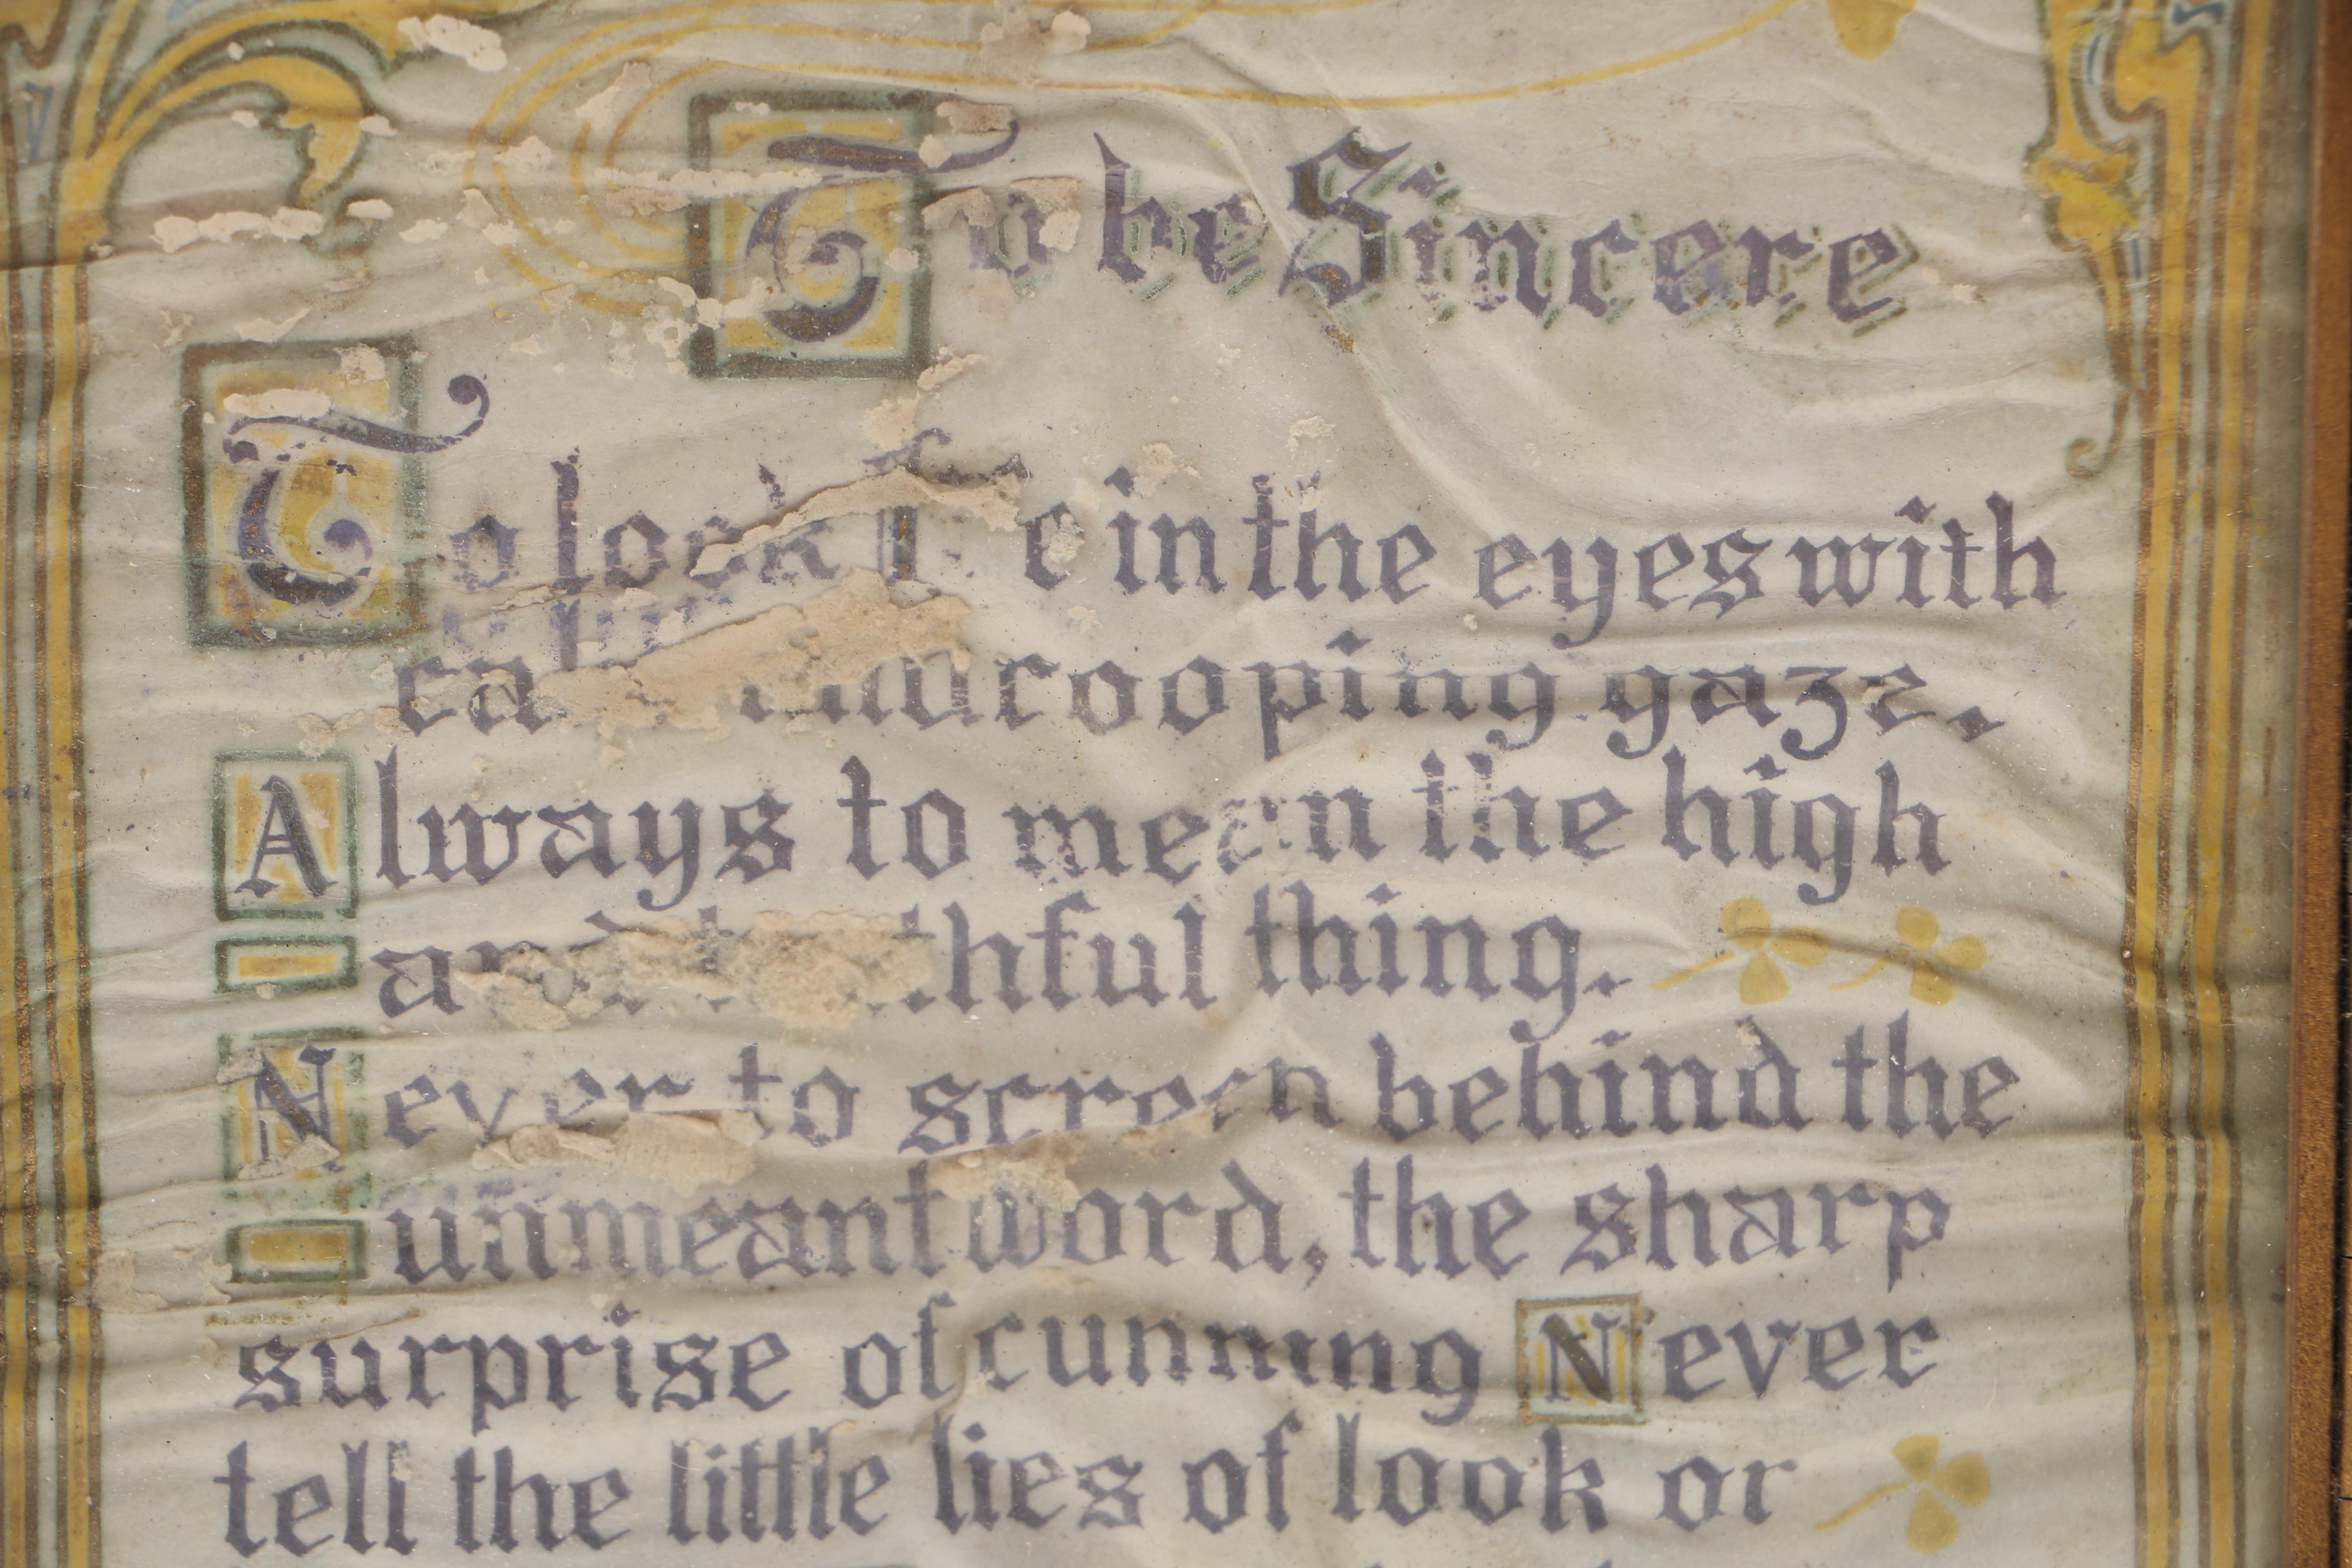 To be Sincere
To look in the eyes with
calm undrooping gaze,
Always to mean the high
and truthful thing.
Never to screen behind the
unmeant word, the sharp
surprise of cunning Never
tell the little lies of look or